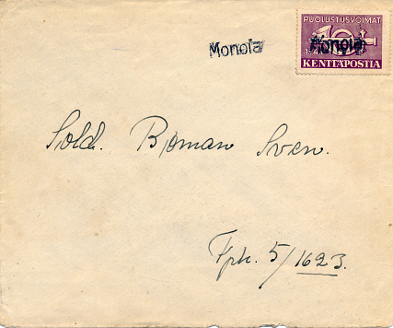 Monola
PUOLUSTUSVOIMAT
Monola
KENTTÄPOSTIA
Sold. Boman Sven.
Fpk. 5/1623.